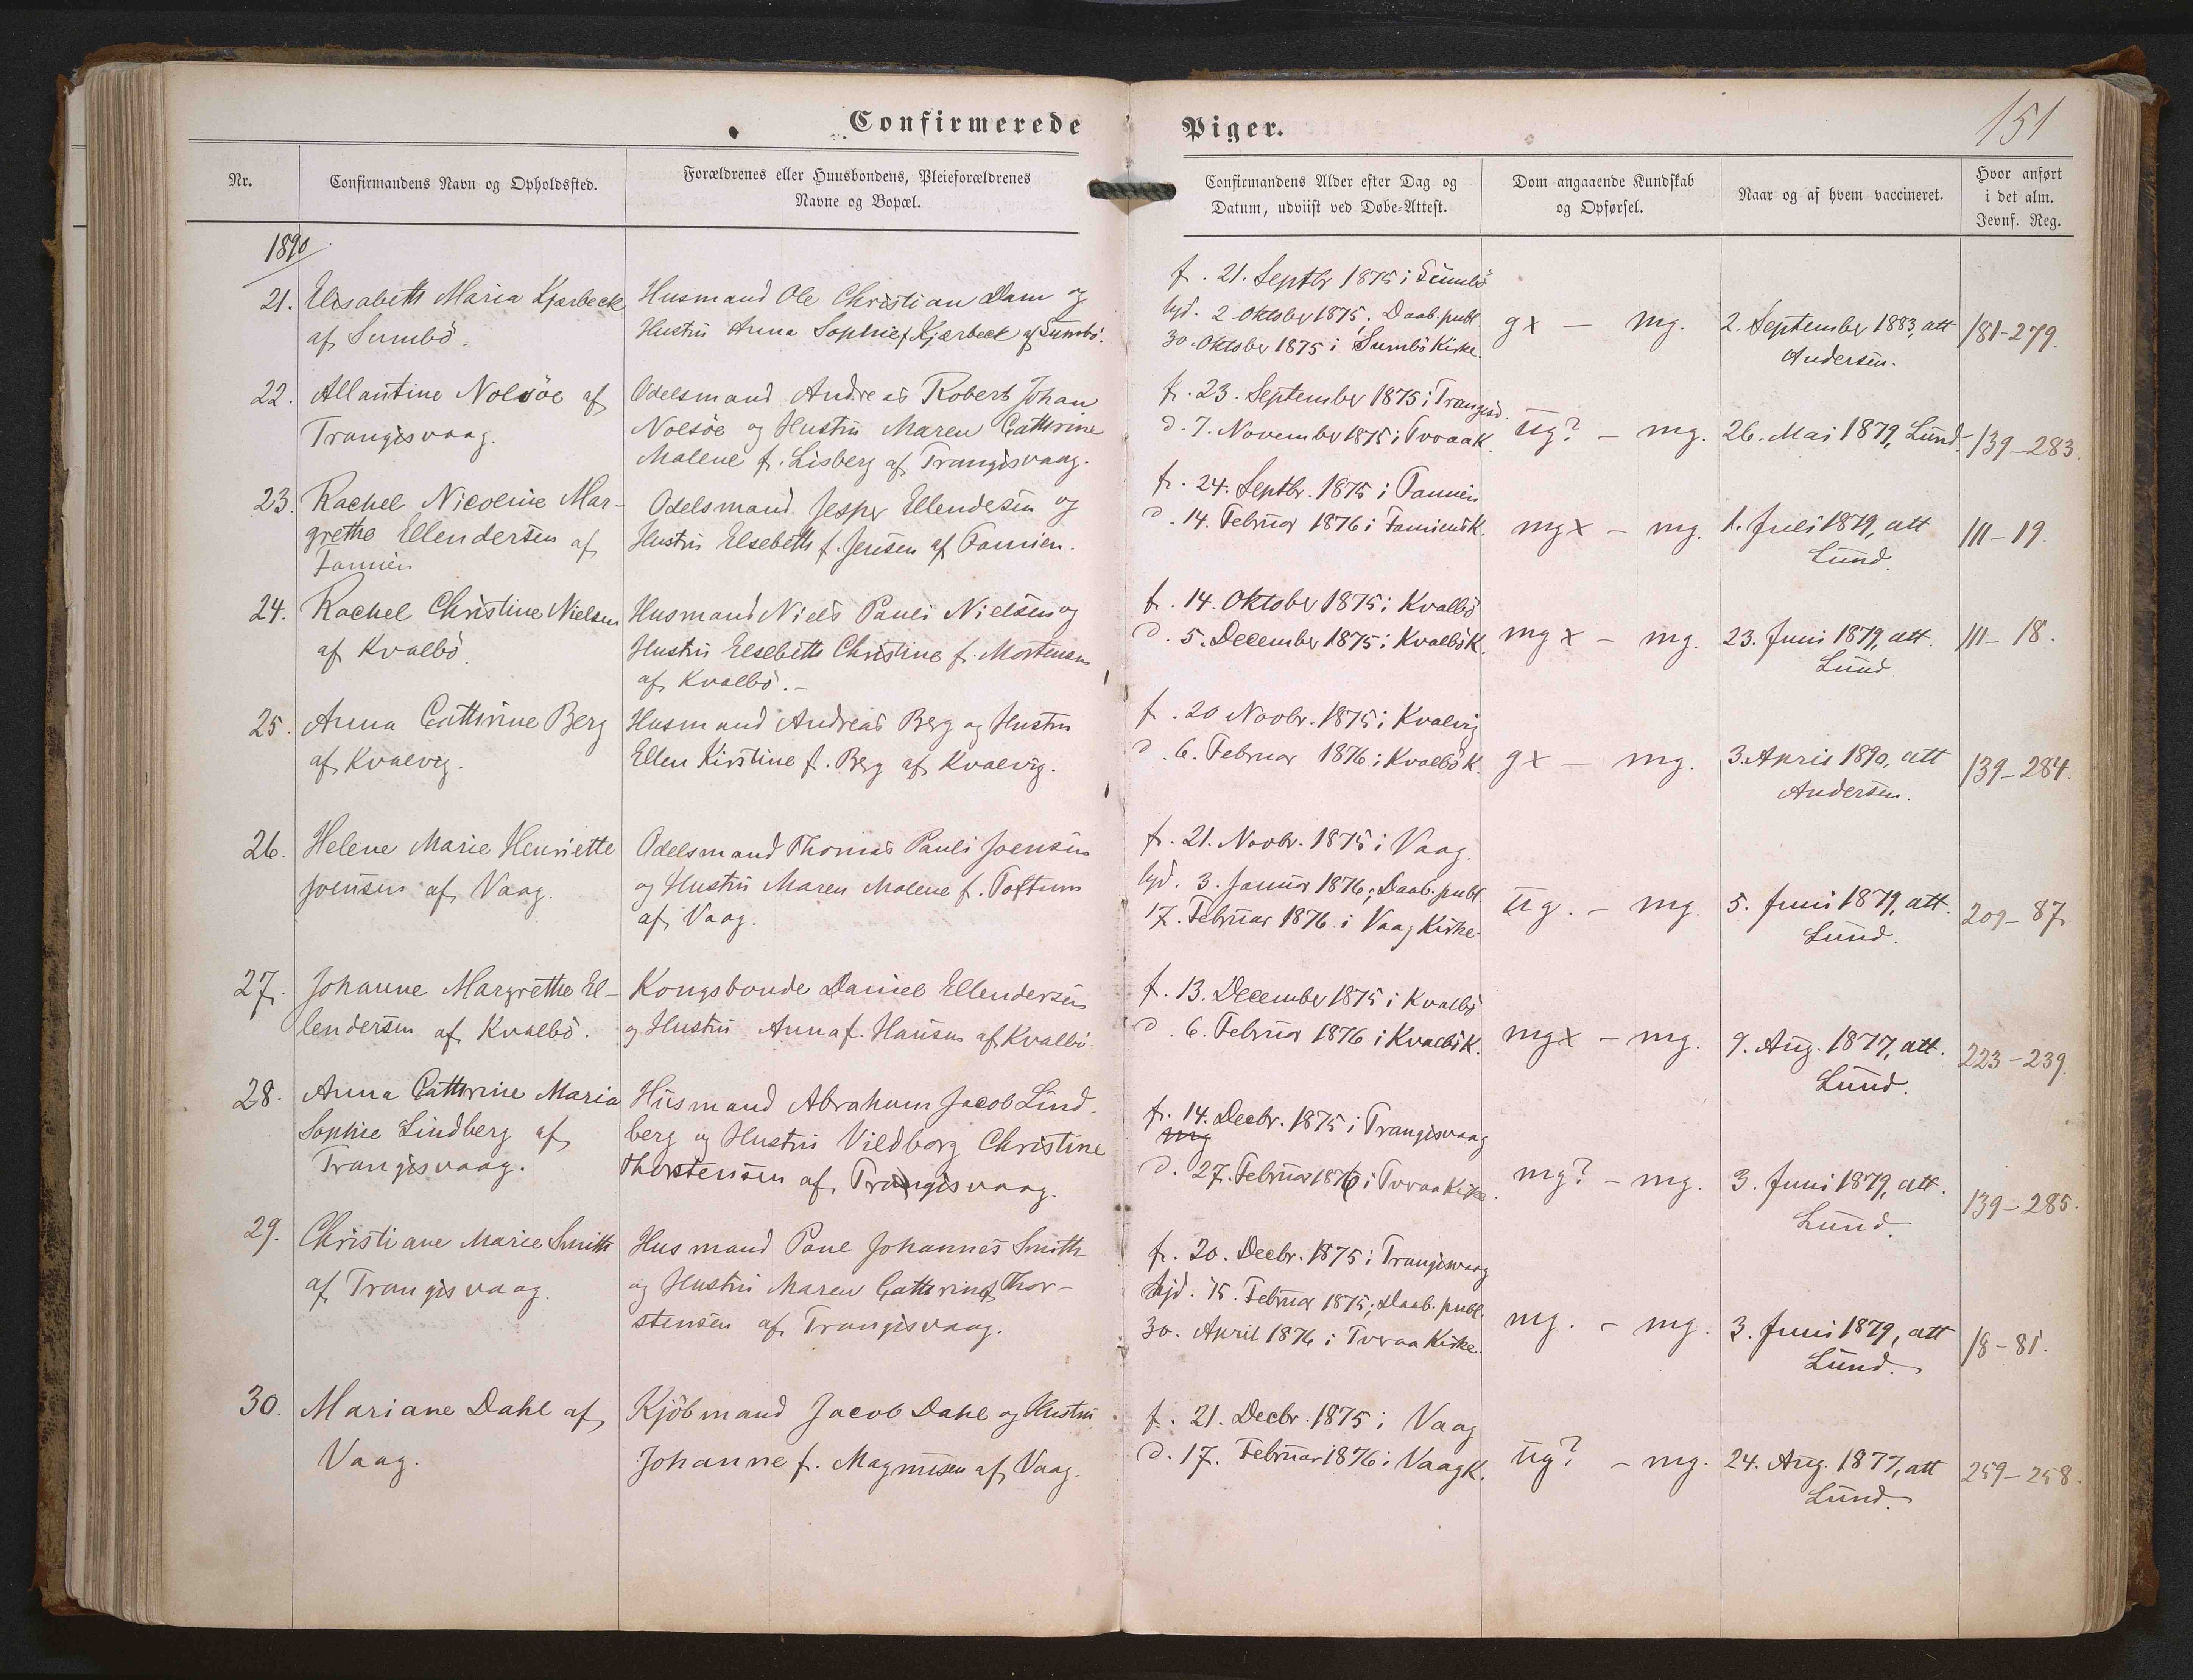 Confirmerede Piger.
151
Nr.
Confirmandens Navn og Opholdssted.
Forældrenes eller Huusbondens, Pleieforældrenes
Navne og Bopæl.
Confirmandens Alder efter Dag og
Datum, udviist ved Døbe-Attest.
Dom angaaende Kundskab
og Opførsel.
Naar og af hvem vaccineret.
Hvor anført
i det alm.
Jevnf. Reg.
1890
21. Elisabeth Maria Kjærbeck
af Sumbö.
Husmand Ole Christian Dam og
Hustru Anna Sophie f. Kjærbeck af Sumbö.
f. 21. Septbr 1875 i Sumbö
hjd. 2 Oktober 1875, Daab. publ.
30. Oktober 1875 i Sumbö Kirke.
gx — mg.
2. September 1883, att
Andersen.
181-279.
22. Allantine Nolsöe af
Trangisvaag.
Odelsmand Andreas Robert Johan
Nolsöe og Hustru Maren Cathrine
Malene f. Lisberg af Trangisvaag.
f. 23. September 1875 i Trangisv.
d. 7. November 1875 i Tvraa K.
ug? — mg.
26. Mai 1879, Lund.
139-283.
23. Rachel Nicoline Mar-
grethe Ellendersen af
Famien
Odelsmand Jesper Ellendersen og
Hustru Elsebeth f. Jensen af Famien.
f. 24. Septbr. 1875 i Famien
d. 14. Februar 1876 i Famiens K.
mgx — mg.
1. Juli 1879, att
Lund.
111-19.
24. Rachel Christine Nielsen
af Kvalbö.
Husmand Niels Pauli Nielsen og
Hustru Elsebeth Christine f. Mortensen
af Kvalbö.-
f. 14. Oktober 1875 i Kvalbö
d. 5. December 1875 i Kvalbö K.
mgx — mg.
23. Juni 1879, att.
Lund.
111-18.
25. Anna Cathrine Berg
af Kvalvig.
Husmand Andreas Berg og Hustru
Ellen Kirstine f. Berg af Kvalvig.
f. 20 Novbr. 1875 i Kvalvig
d. 6. Februar 1876 i Kvalbö K.
gx — mg.
3. April 1890, att
Andersen.
139-284.
26. Helene Marie Henriette
Joensen af Vaag.
Odelsmand Thomas Pauli Joensen
og Hustru Maren Malene f. Toftum
af Vaag.
f. 21. Novbr. 1875 i Vaag.
hjd. 3. Januar 1876, Daab. publ.
17. Februar 1876 i Vaag Kirke.
ug. — mg.
5. Juni 1879, att.
Lund.
209-87.
27. Johanne Margrethe El-
lendersen af Kvalbö.
Kongsbonde Daniel Ellendersen
og Hustru Anna f. Hansen af Kvalbö.
f. 13. December 1875 i Kvalbö
d. 6. Februar 1876 i Kvalbö K.
mgx — mg.
9. Aug. 1877, att.
Lund.
223-239.
28. Anna Cathrine Maria
Sophie Lindberg af
Trangisvaag.
Husmand Abraham Jacob Lind-
berg og Hustru Vildborg Christine
Thorstensen af Trangisvaag.
f. 14. Decbr. 1875 i Trangisvaag
mg
d. 27. Februar 1876 i Tvraa Kirke.
mg? — mg.
3. Juni 1879, att.
Lund.
139-285.
29. Christiane Marie Smith
af Trangisvaag.
Husmand Poul Johannes Smith
og Hustru Maren Cathrine f. Thor-
stensen af Trangisvaag.
f. 20. Decbr. 1875 i Trangisvaag
hjd. 15. Februar 1875; Daab. publ.
30. April 1876 i Tvraa Kirke.
mg. — mg.
3. Juni 1879, att
Lund.
18-81.
30. Mariane Dahl af
Vaag.
Kjöbmand Jacob Dahl og Hustru
Johanne f. Magnusen af Vaag.
f. 21. Decbr. 1875 i Vaag
d. 17. Februar 1876 i Vaag K.
ug? — mg.
24. Aug. 1877, att
Lund.
259-258.